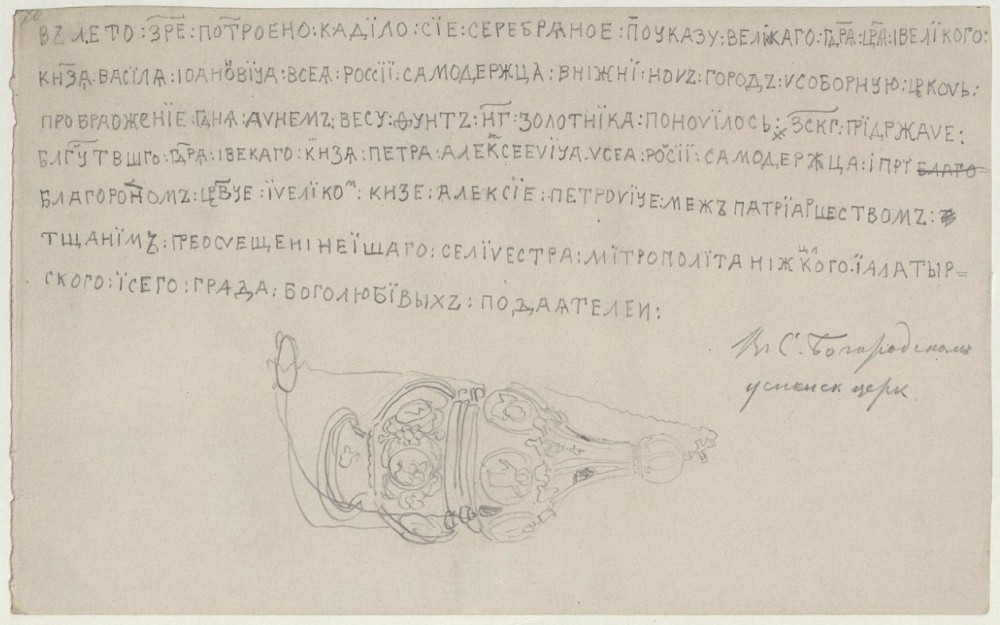 ВЪ ЛЕТО : ЗРЕ : ПОТРОЕНО : КАДЇЛО : СЇЕ : СЕРЕБРѦНОЕ : ПОУКАЗУ : ВЕЛІКАГО : ГДРѦ : ЦРѦ : ІВЕЛЇКОГО :
КНЗѦ : ВАСЇЛѦ : ІОАНОВІЧА : ВСЕѦ : РОССІЇ : САМОДЕРЖЦА : ВНІЖНІ : НОVЪ : ГОРОДЪ : VСОБОРНУЮ : ЦРКОVЬ :
ПРОБРАОЖЕНЇЕ : ГДНѦ : АVНЕМЪ ВЕСУ : ѲУНТЪ : НГ : ЗОЛОТНІКА : ПОНОVЇЛОСЬ : ЗСКГ : ПРЇДРЖАVЕ :
БЛГЧТВШГО : ГДРѦ : ІВЕКАГО : КНЗѦ : ПЕТРА : АЛЕКСЕЕVІЧА . VСЕѦ : РОСЇІ : САМОДЕРЖЦА : І ПРЇ БЛАГО
БЛАГОРОНОМЪ : ЦРВЧЕ : ЇVЕЛЇКОМ : КНЗЕ : АЛЕКСІЕ : ПЕТРОVІЧЕ : МЕЖЪ ПАТРЇАРШЕСТВОМЪ :
ТЩАНЇМЪ : ПРЕОСVЕЩЕНІНЕЇШАГО : СЕЛІVЕСТРА : МЇТРОПОЛЇТА НІЖКОГО : ЇАЛАТЫР=
СКОГО : ЇСЕГО : ГРАДА : БОГОЛЮБЇВЫХЪ : ПОДАѦТЕЛЕИ :
Въ С. Богородскомъ
успенск церк